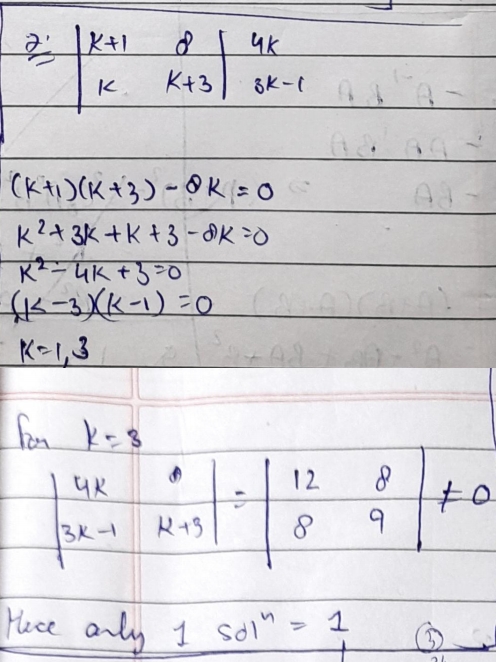 2. | k+1 8 | 4k
| k k+3 | 3k-1
(k+1)(k+3) - 8k = 0
k²+3k+k+3-8k=0
k²-4k+3=0
(k-3)(k-1)=0
k=1,3
For k=3
| 4k 8 | = | 12 8 | ≠ 0
| 3k-1 k+3 | | 8 9 |
Hece only 1 solⁿ = 1 (3)